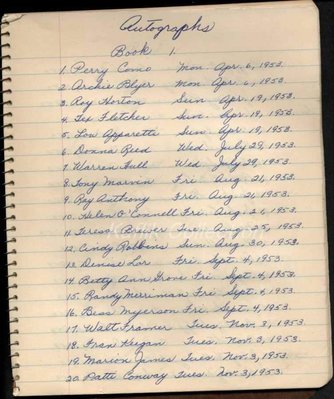 Autographs
Book 1.
1. Perry Como Mon. Apr. 6, 1953.
2. Archie Blyer Mon. Apr. 6, 1953.
3. Roy Horton Sun. Apr. 19, 1953.
4. Tex Fletcher Sun. Apr. 19, 1953.
5. Lou Apparette Sun. Apr. 19, 1953.
6. Donna Reed Wed. July 29, 1953.
7. Warren Hull Wed. July 29, 1953.
8. Tony Marvin Fri. Aug. 21, 1953.
9. Ray Anthony Fri. Aug. 21, 1953.
10. Helen O'Connell Fri. Aug. 21, 1953.
11. Teresa Brewer Tues. Aug. 25, 1953.
12. Cindy Robbins Sun. Aug. 30, 1953.
13. Denise Lor Fri. Sept. 4, 1953.
14. Betty Ann Grove Fri. Sept. 4, 1953.
15. Randy Merriman Fri. Sept. 4, 1953
16. Bess Myerson Fri. Sept. 4, 1953.
17. Walt Framer Tues. Nov. 3, 1953.
18. Fran Keegan Tues. Nov. 3, 1953.
19. Marion James Tues. Nov. 3, 1953.
20. Patti Conway Tues. Nov. 3, 1953.